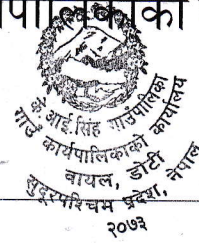 पालिकाको
के.आई.सिंह गाउँपालिका
गाउँ कार्यपालिकाको कार्यालय
वायल, डोटी
सुदूरपश्चिम प्रदेश, नेपाल
२०७३